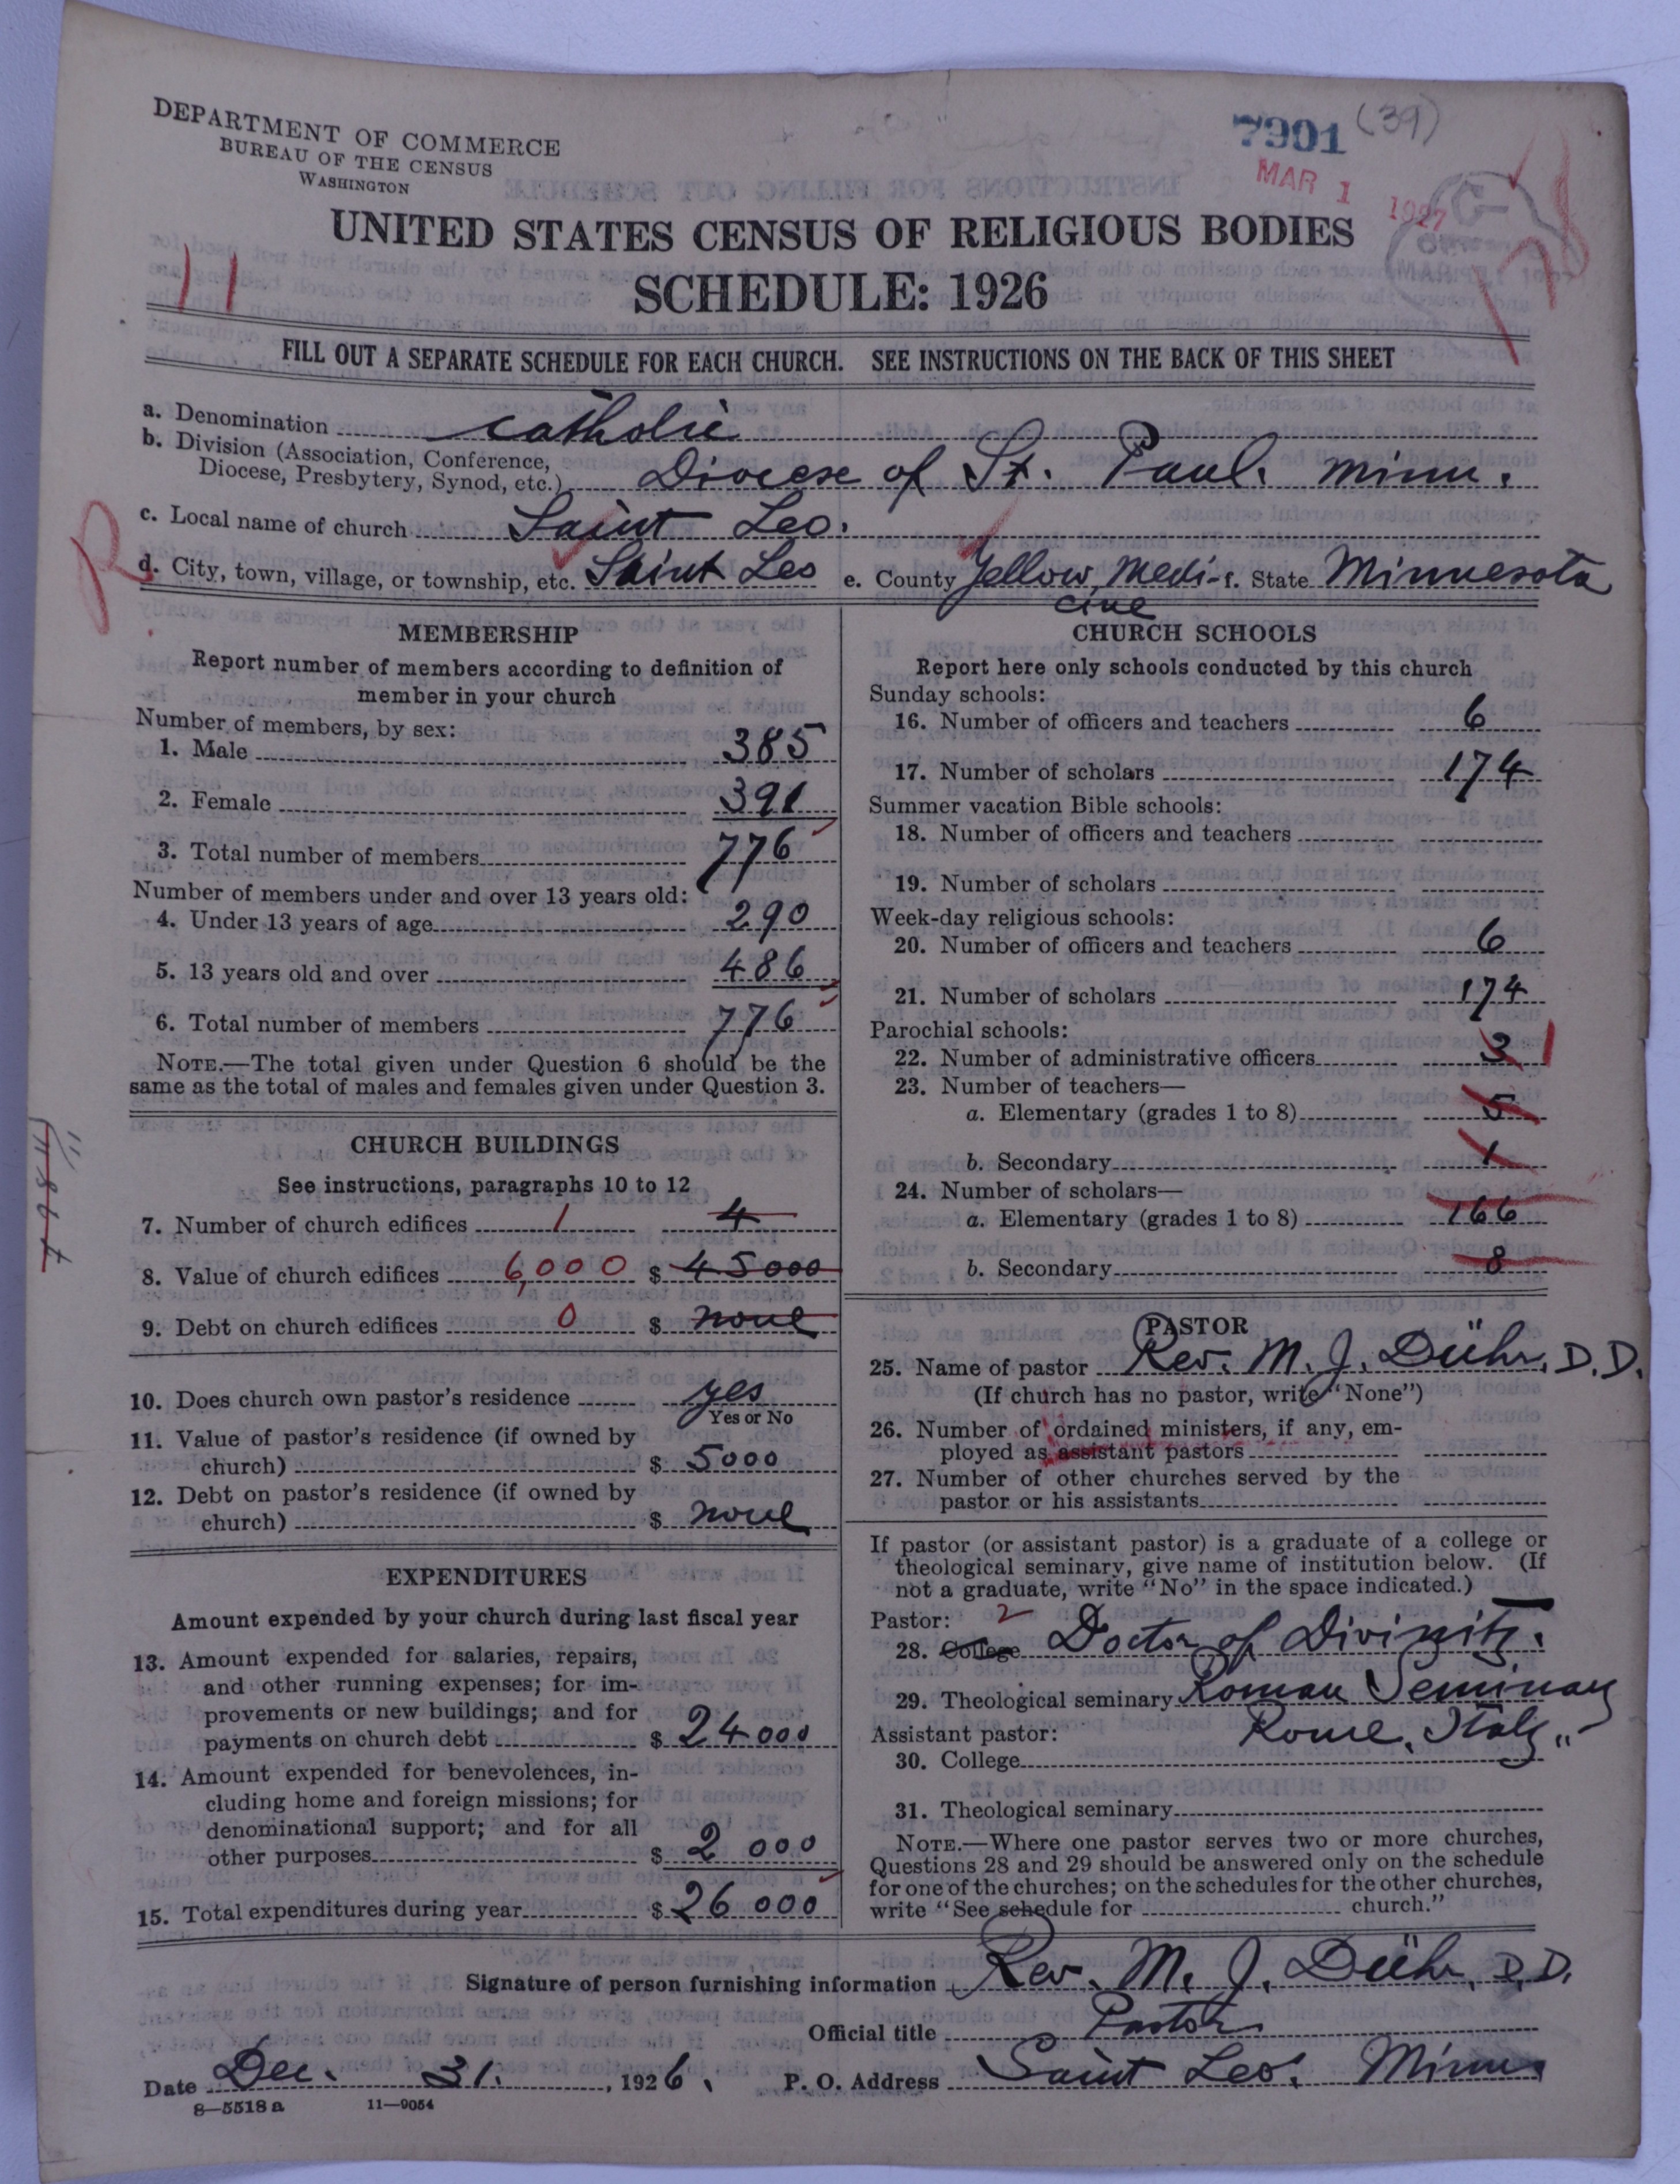 DEPARTMENT OF COMMERCE
BUREAU OF THE CENSUS
WASHINGTON
7901 (39)
MAR 1 1927
UNITED STATES CENSUS OF RELIGIOUS BODIES
11
SCHEDULE: 1926
FILL OUT A SEPARATE SCHEDULE FOR EACH CHURCH. SEE INSTRUCTIONS ON THE BACK OF THIS SHEET
a. Denomination Catholic
b. Division (Association, Conference,
Diocese, Presbytery, Synod, etc.) Diocese of St. Paul. Minn.
c. Local name of church Saint Leo.
R
d. City, town, village, or township, etc. Saint Leo e. County Yellow Medi- f. State Minnesota
cine
MEMBERSHIP
Report number of members according to definition of
member in your church
Number of members, by sex:
1. Male 385
2. Female 391
3. Total number of members 776
Number of members under and over 13 years old:
4. Under 13 years of age 290
5. 13 years old and over 486
6. Total number of members 776
NOTE.—The total given under Question 6 should be the
same as the total of males and females given under Question 3.
CHURCH BUILDINGS
See instructions, paragraphs 10 to 12
7. Number of church edifices 1 4
8. Value of church edifices 6,000 $ 45000
9. Debt on church edifices 0 $ none
10. Does church own pastor's residence yes
Yes or No
11. Value of pastor's residence (if owned by
church) $ 5000
12. Debt on pastor's residence (if owned by
church) $ none
EXPENDITURES
Amount expended by your church during last fiscal year
13. Amount expended for salaries, repairs,
and other running expenses; for im-
provements or new buildings; and for
payments on church debt $ 24000
14. Amount expended for benevolences, in-
cluding home and foreign missions; for
denominational support; and for all
other purposes $ 2 000
15. Total expenditures during year $ 26 000
CHURCH SCHOOLS
Report here only schools conducted by this church
Sunday schools:
16. Number of officers and teachers 6
17. Number of scholars 174
Summer vacation Bible schools:
18. Number of officers and teachers
19. Number of scholars
Week-day religious schools:
20. Number of officers and teachers 6
21. Number of scholars 174
Parochial schools:
22. Number of administrative officers 3 1
23. Number of teachers—
a. Elementary (grades 1 to 8) 5
b. Secondary 1
24. Number of scholars—
a. Elementary (grades 1 to 8) 166
b. Secondary 8
PASTOR
25. Name of pastor Rev. M. J. Dühr, D.D.
(If church has no pastor, write "None")
26. Number of ordained ministers, if any, em-
ployed as assistant pastors
27. Number of other churches served by the
pastor or his assistants
If pastor (or assistant pastor) is a graduate of a college or
theological seminary, give name of institution below. (If
not a graduate, write "No" in the space indicated.)
Pastor: 2
28. College Doctor of Divinity.
29. Theological seminary Roman Seminary
Assistant pastor: Rome, Italy
30. College
31. Theological seminary
NOTE.—Where one pastor serves two or more churches,
Questions 28 and 29 should be answered only on the schedule
for one of the churches; on the schedules for the other churches,
write "See schedule for church."
Signature of person furnishing information Rev. M. J. Dühr, D.D.
Official title Pastor
Date Dec. 31. , 1926. P. O. Address Saint Leo. Minn.
8—5518 a 11—9054